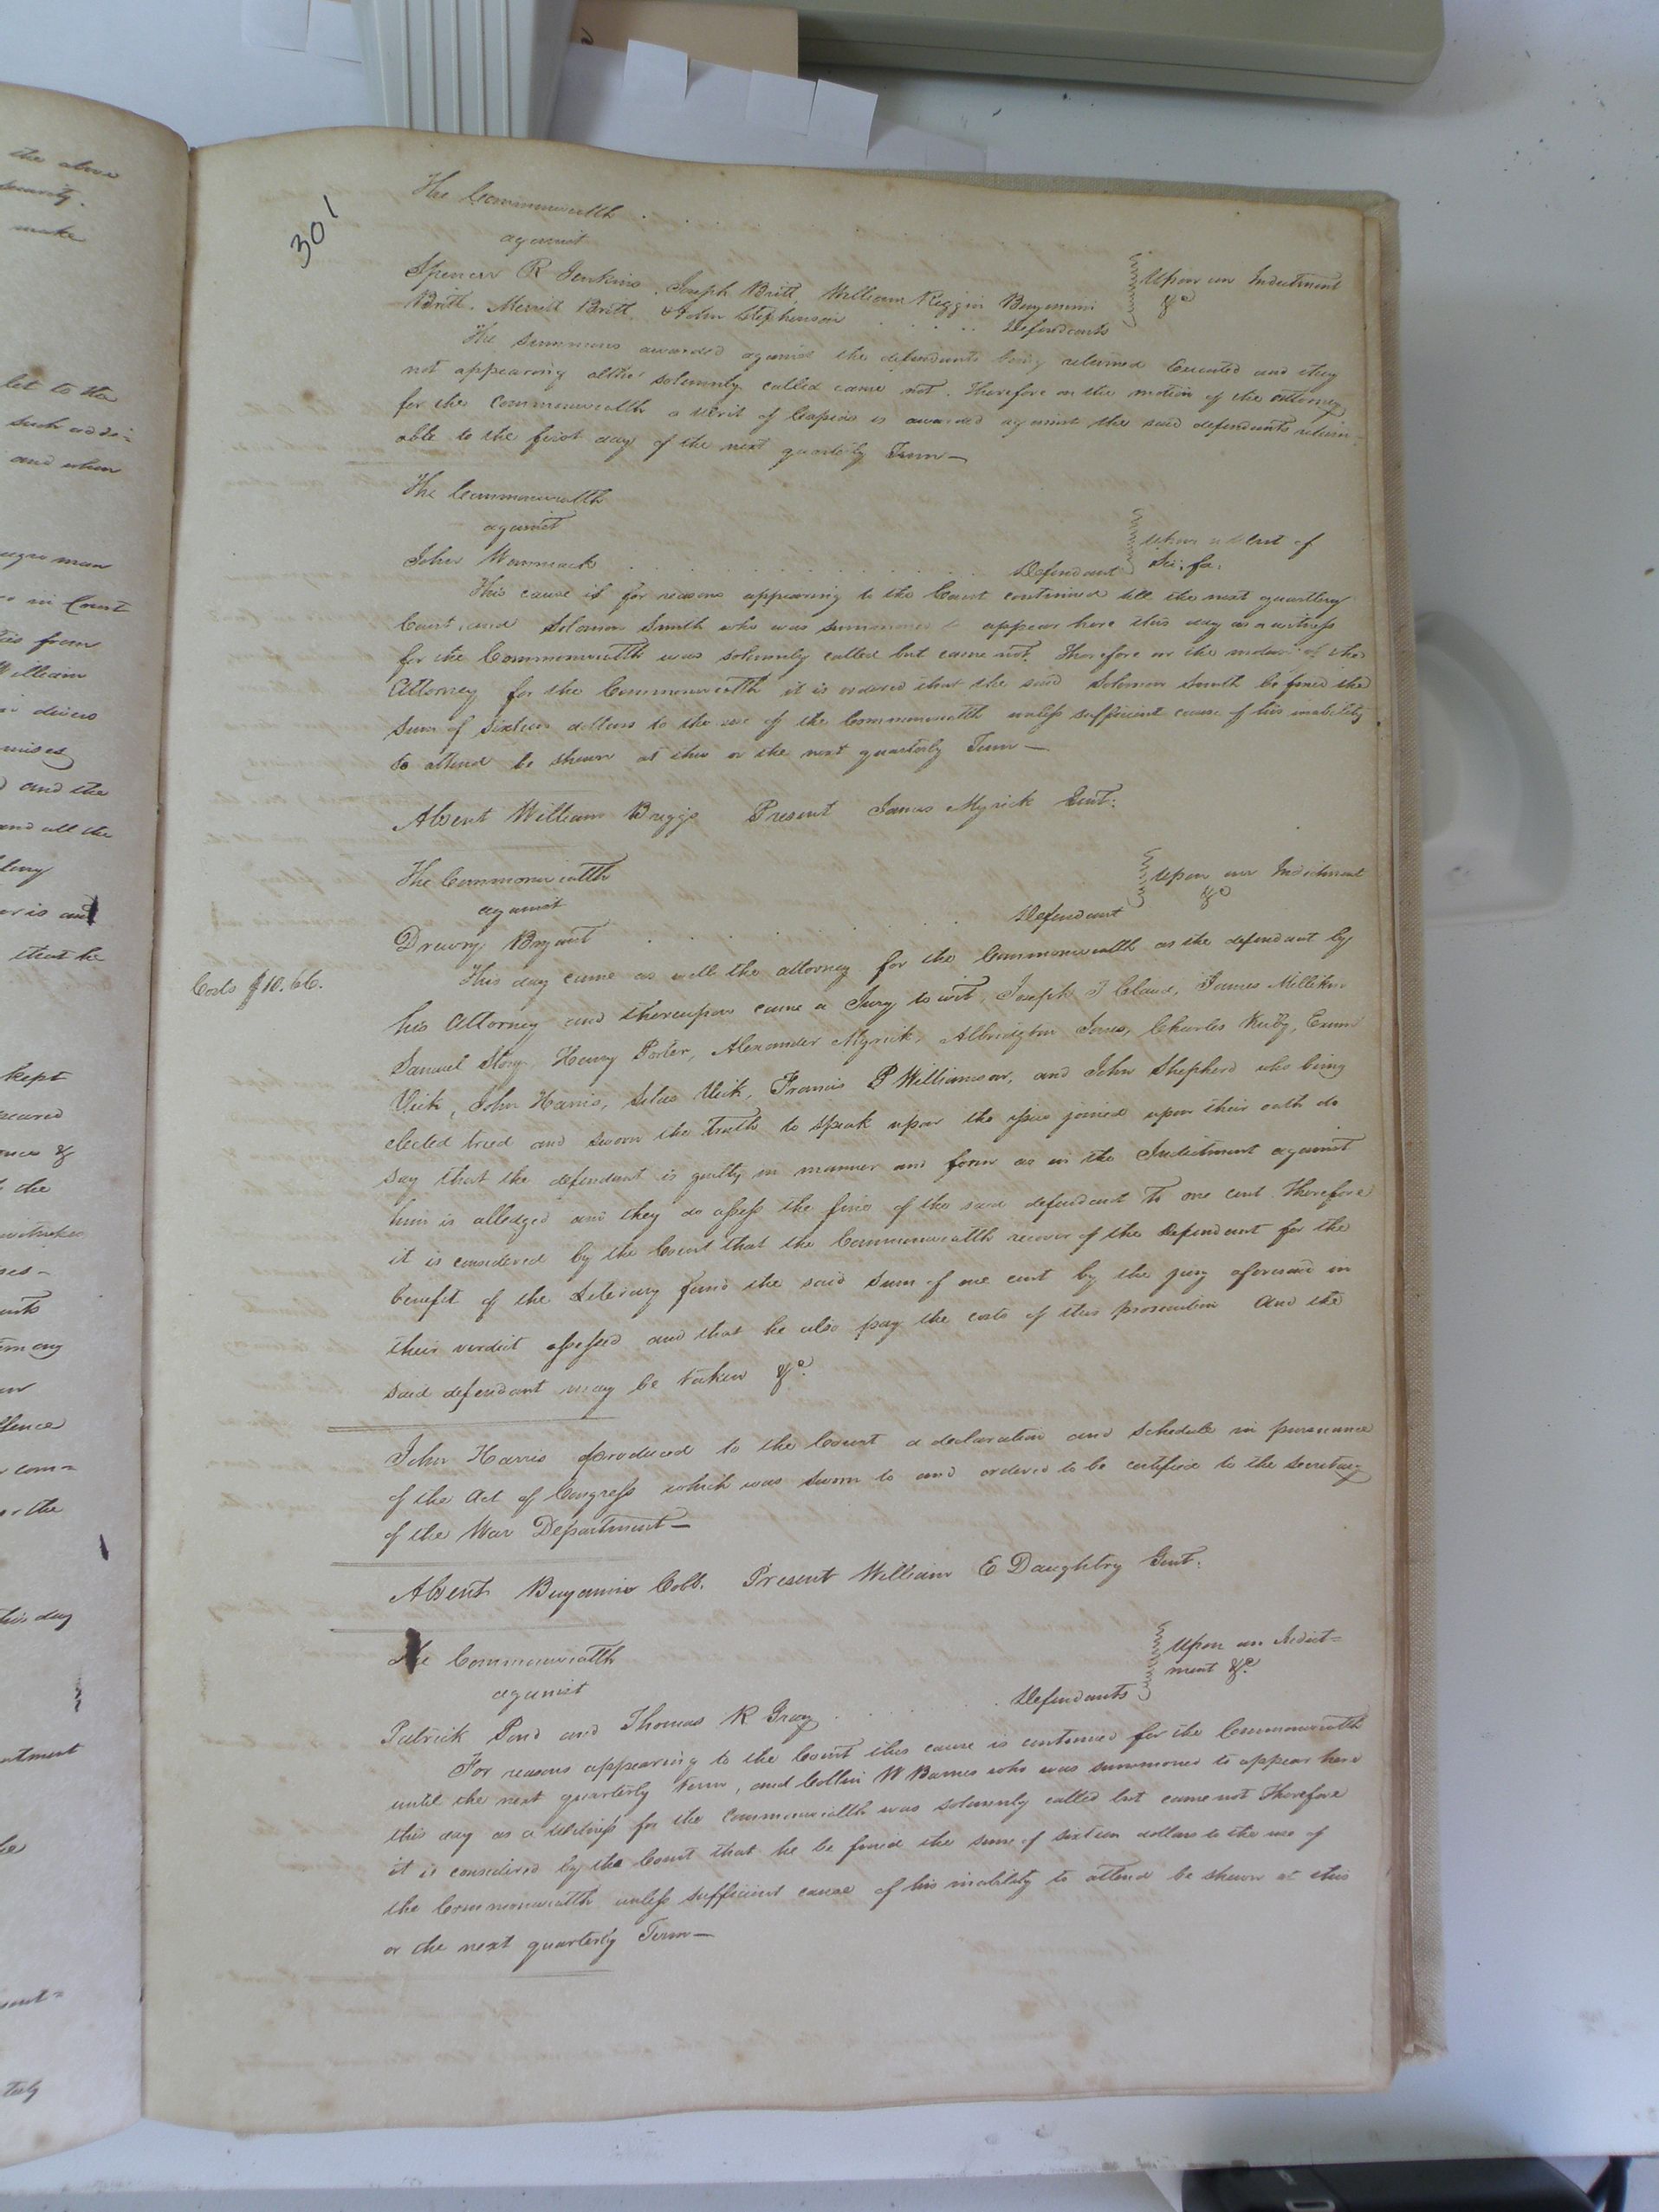 the above
security.
make
let to the
such addi-
and when
negro man
in Court
from
William
divers
mises
and the
and all the
or is and
that he
kept
&
the
offence
com=
or the
this day
301
The Commonwealth . . .
against
Spencer R Jenkins, Joseph Britt, William Riggin Benjamin
Britt, Merrit Britt, & John Stephenson . . . . . Defendants
Upon an Indictment
&c
The summons awarded against the defendants being returned Executed and they
not appearing altho' solemnly called came not. Therefore on the motion of the attorney
for the Commonwealth a Writ of Capias is awarded against the said defendants return-
able to the first day of the next quarterly Term—
The Commonwealth
against
John Wommack . . . . . . . . Defendant
Upon a Writ of
Sci: fa:
This cause is for reasons appearing to the Court continued till the next quarterly
Court, and Solomon Smith who was summoned to appear here this day as a witness
for the Commonwealth was solemnly called but came not. Therefore on the motion of the
Attorney for the Commonwealth it is ordered that the said Solomon Smith be fined the
sum of sixteen dollars to the use of the Commonwealth unless sufficient cause of his inability
to attend be shewn at this or the next quarterly Term—
Absent William Briggs Present James Myrick Gent:
The Commonwealth
against
Drewry Bryant . . . . . . . Defendant
Upon an Indictment
&c
Costs $10.66.
This day came as well the attorney for the Commonwealth as the defendant by
his Attorney and thereupon came a Jury to wit, Joseph T Claud, James Millikin
Samuel Story, Henry Porter, Alexander Myrick, Albridgton Jones, Charles Kirby,
Vick, John Harris, Silas Vick, Francis P Williamson, and John Shepherd who being
elected tried and sworn the truth to speak upon the issue joined upon their oath do
say that the defendant is guilty in manner and form as in the Indictment against
him is alledged and they do assess the fine of the said defendant to one cent. Therefore
it is considered by the Court that the Commonwealth recover of the Defendant for the
benefit of the Literary fund the said sum of one cent by the jury aforesaid in
their verdict assessed and that he also pay the costs of this prosecution and the
said defendant may be taken &c.
John Harris produced to the Court a declaration and schedule in pursuance
of the Act of Congress which was sworn to and ordered to be certified to the secretary
of the War Department—
Absent Benjamin Cobb. Present William E Daughtry Gent:
The Commonwealth
against
Patrick Pond and Thomas R Gray . . . . . Defendants
Upon an Indict=
ment &c.
For reasons appearing to the Court this cause is continued for the Commonwealth
until the next quarterly term, and Collin W Barnes who was summoned to appear here
this day as a Witness for the Commonwealth was solemnly called but came not Therefore
it is considered by the Court that he be fined the sum of sixteen dollars to the use of
the Commonwealth unless sufficient cause of his inability to attend be shewn at this
or the next quarterly Term—